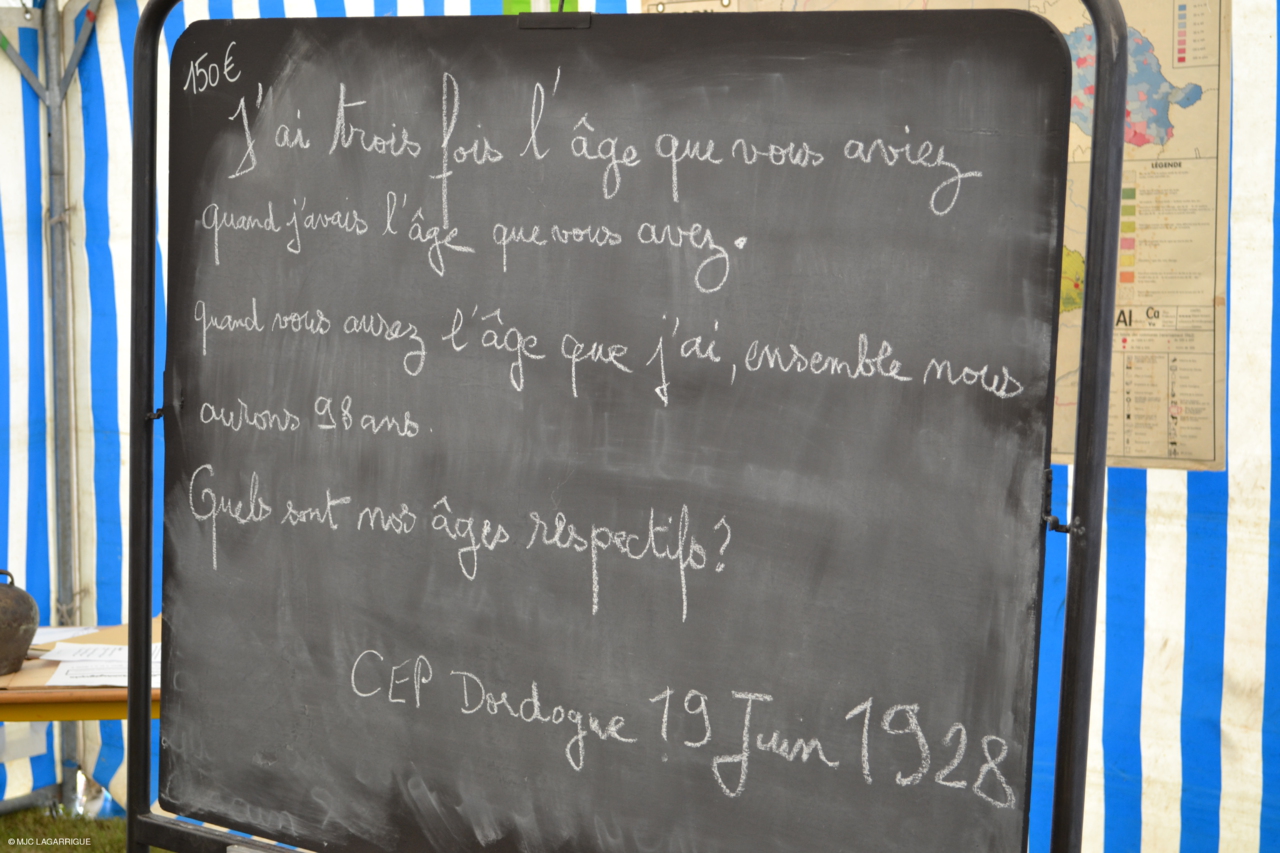 150€
J'ai trois fois l'âge que vous aviez
quand j'avais l'âge que vous avez.
quand vous aurez l'âge que j'ai, ensemble nous
aurons 98 ans.
Quels sont nos âges respectifs?
CEP Dordogne 19 Juin 1928
LÉGENDE
Al Ca
© MJC LAGARRIGUE